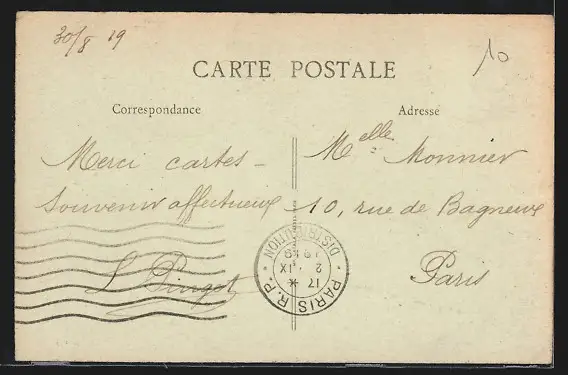 30/8 19
10
CARTE POSTALE
Correspondance
Adresse
Merci cartes -
Souvenir affectueux
L Pingot
Melle Monnier
10, rue de Bagneux
Paris
PARIS R.P.
DISTRIBUTION
17 *
2 . IX
1919